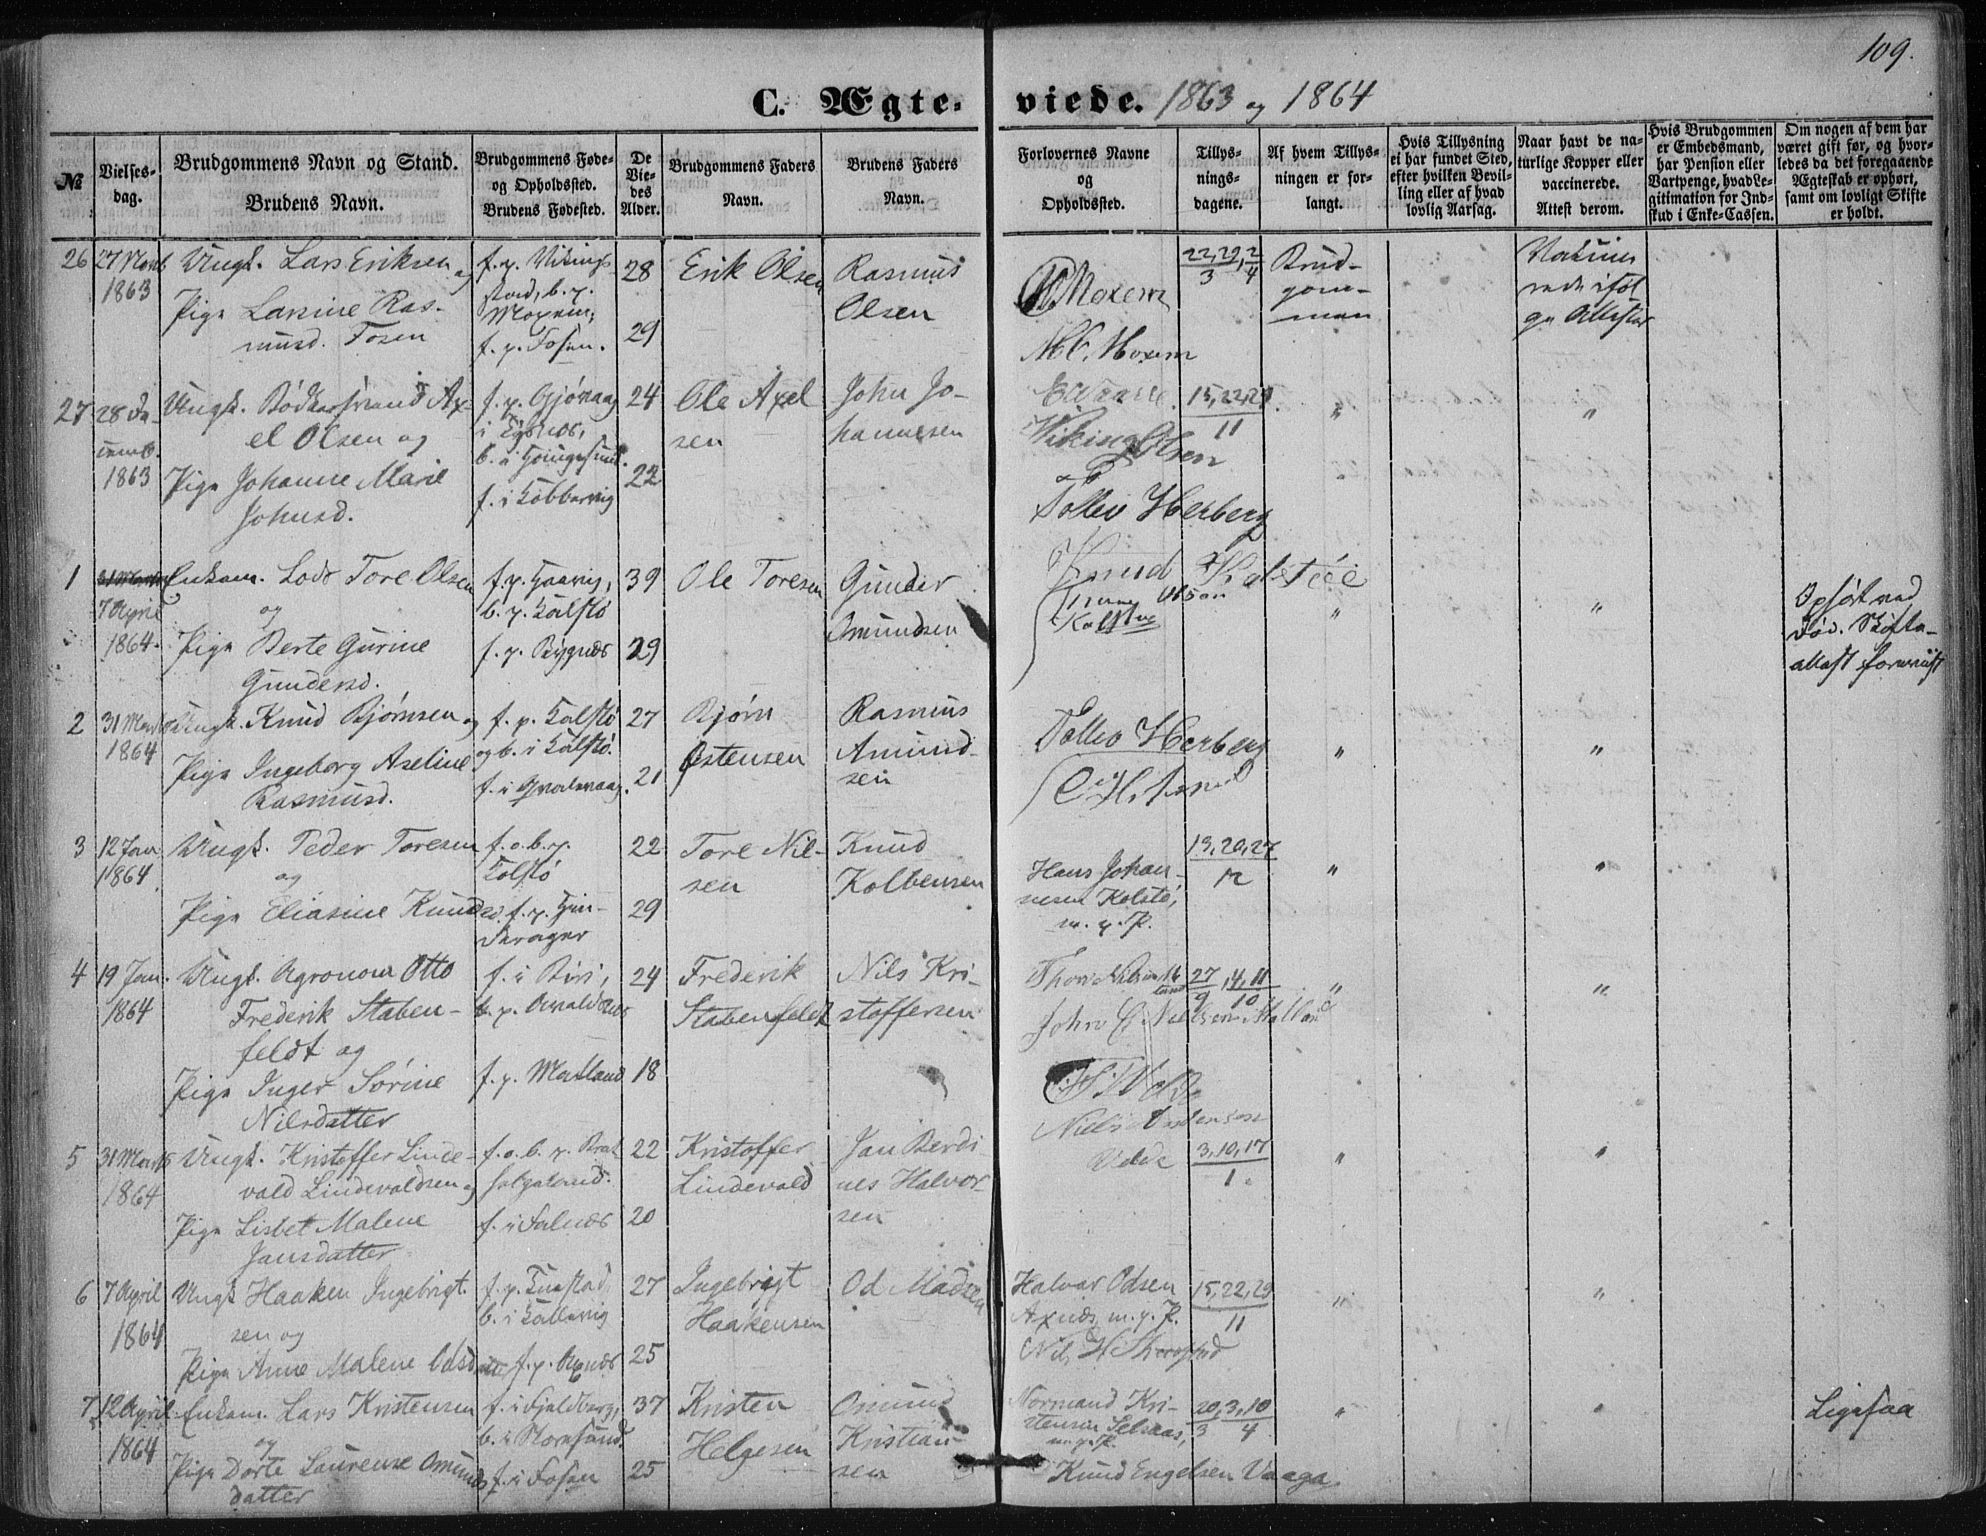 109.
C. Ægte- viede. 1863 og 1864
№
Vielses-
dag.
Brudgommens Navn og Stand.
Brudens Navn.
Brudgommens Føde-
og Opholdssted.
Brudens Fødested.
De
Vie-
des
Alder.
Brudgommens Faders
Navn.
Brudens Faders
Navn.
Forlovernes Navne
og
Opholdssted.
Tillys-
nings-
dagene.
Af hvem Tillys-
ningen er for-
langt.
Hvis Tillysning
ei har fundet Sted,
efter hvilken Bevil-
ling eller af hvad
lovlig Aarsag.
Naar havt de na-
turlige Kopper eller
vaccinerede.
Attest derom.
Hvis Brudgommen
er Embedsmand,
har Pension eller
Vartpenge, hvad Le-
gitimation for Ind-
skud i Enke-Cassen.
Om nogen af dem har
været gift før, og hvor-
ledes da det foregaaende
Ægteskab er ophørt,
samt om lovligt Skifte
er holdt.
26
1863
Ungk. Lars Eriksen og
Pige Lavine Ras-
musd. Fosen
f. p. Vikings-
stad, b. p.
Moxem,
f. p. Fosen.
28
29
Erik Olsen
Rasmus
Olsen
Moxem
22, 29, 2
3 4
Brud-
gom-
men
27
28 De-
cemb.
1863
Ungk. Bødkersvend Ax-
el Olsen og
Pige Johanne Marie
Johnsd.
24
22
Ole Axel
sen
John Jo-
hannesen
Viking Olsen
Tollev Herberg
15, 22, 29
11
"
"
1
7 April
1864.
Enkem. Lods Tore Olsen
og
Pige Berte Gurine
Gundersd.
b. p. Kalstø
f. p. Bygnes
39
29
Ole Toresen
Gunder
Omundsen
Knud
"
"
Ophørt ved
Død. Skifte-
attest forevist
2
31 Marts
1864
Ungk. Knud Bjørnsen og
Pige Ingeborg Aseline
Rasmusd.
f. p. Kalstø
og b. i Kalstø.
f. i Gvalevaag.
27
21
Bjørn
Østensen
Rasmus
Amund-
sen
Tollev Herberg
"
"
3
12 Jan
1864
Ungk. Peder Toresen
og
Pige Eliasine Knudsd.
f. o. b. p.
Kalstø
22
29
Tore Nil-
sen
Knud
Kolbensen
Hans Johan-
nesen Kolstø,
m. p. P.
13, 20, 27
12
"
"
4
19 Jan.
1864
Ungk. Agronom Otto
Frederik Staben-
feldt og
Pige Inger Sørine
Nilsdatter
f. i Biri,
f. p. Matland
24
18
Frederik
Stabenfeldt
Nils Kri-
stoffersen
27, 4, 11
9 10
"
"
5
31 Marts
1864
Ungk. Kristoffer Linde-
vald Lindevaldsen og
Pige Lisbet Malene
Jansdatter
f. o. b. p. Brat-
helgeland.
f. i Falnes
22
20
Kristoffer
Lindevald
Jan Berdi-
nes Halvor-
sen
3, 10, 17
1.
"
"
6
7 April
1864
Ungk Haaken Ingebrigt-
sen og
Pige Anne Malene Odsdatter
f. p. Axnes
27
25
Ingebrigt
Haakensen
Od Madsen
Halvor Odsen
Axnes, m. p. P.
15, 22, 29
11
"
"
7
12 April
1864
Enkem. Lars Kristensen
og
Pige Dorte Laurense Omunds-
datter
f. i Fjeldberg,
b. i Storesund.
f. i Fosen
37
25
Kristen
Helgesen
Omund
Kristian-
sen
Normand Kri-
stensen Selsaas,
m. p. P.
Knud Engelsen Vaaga
20, 3, 10
3 4
"
"
Ligesaa